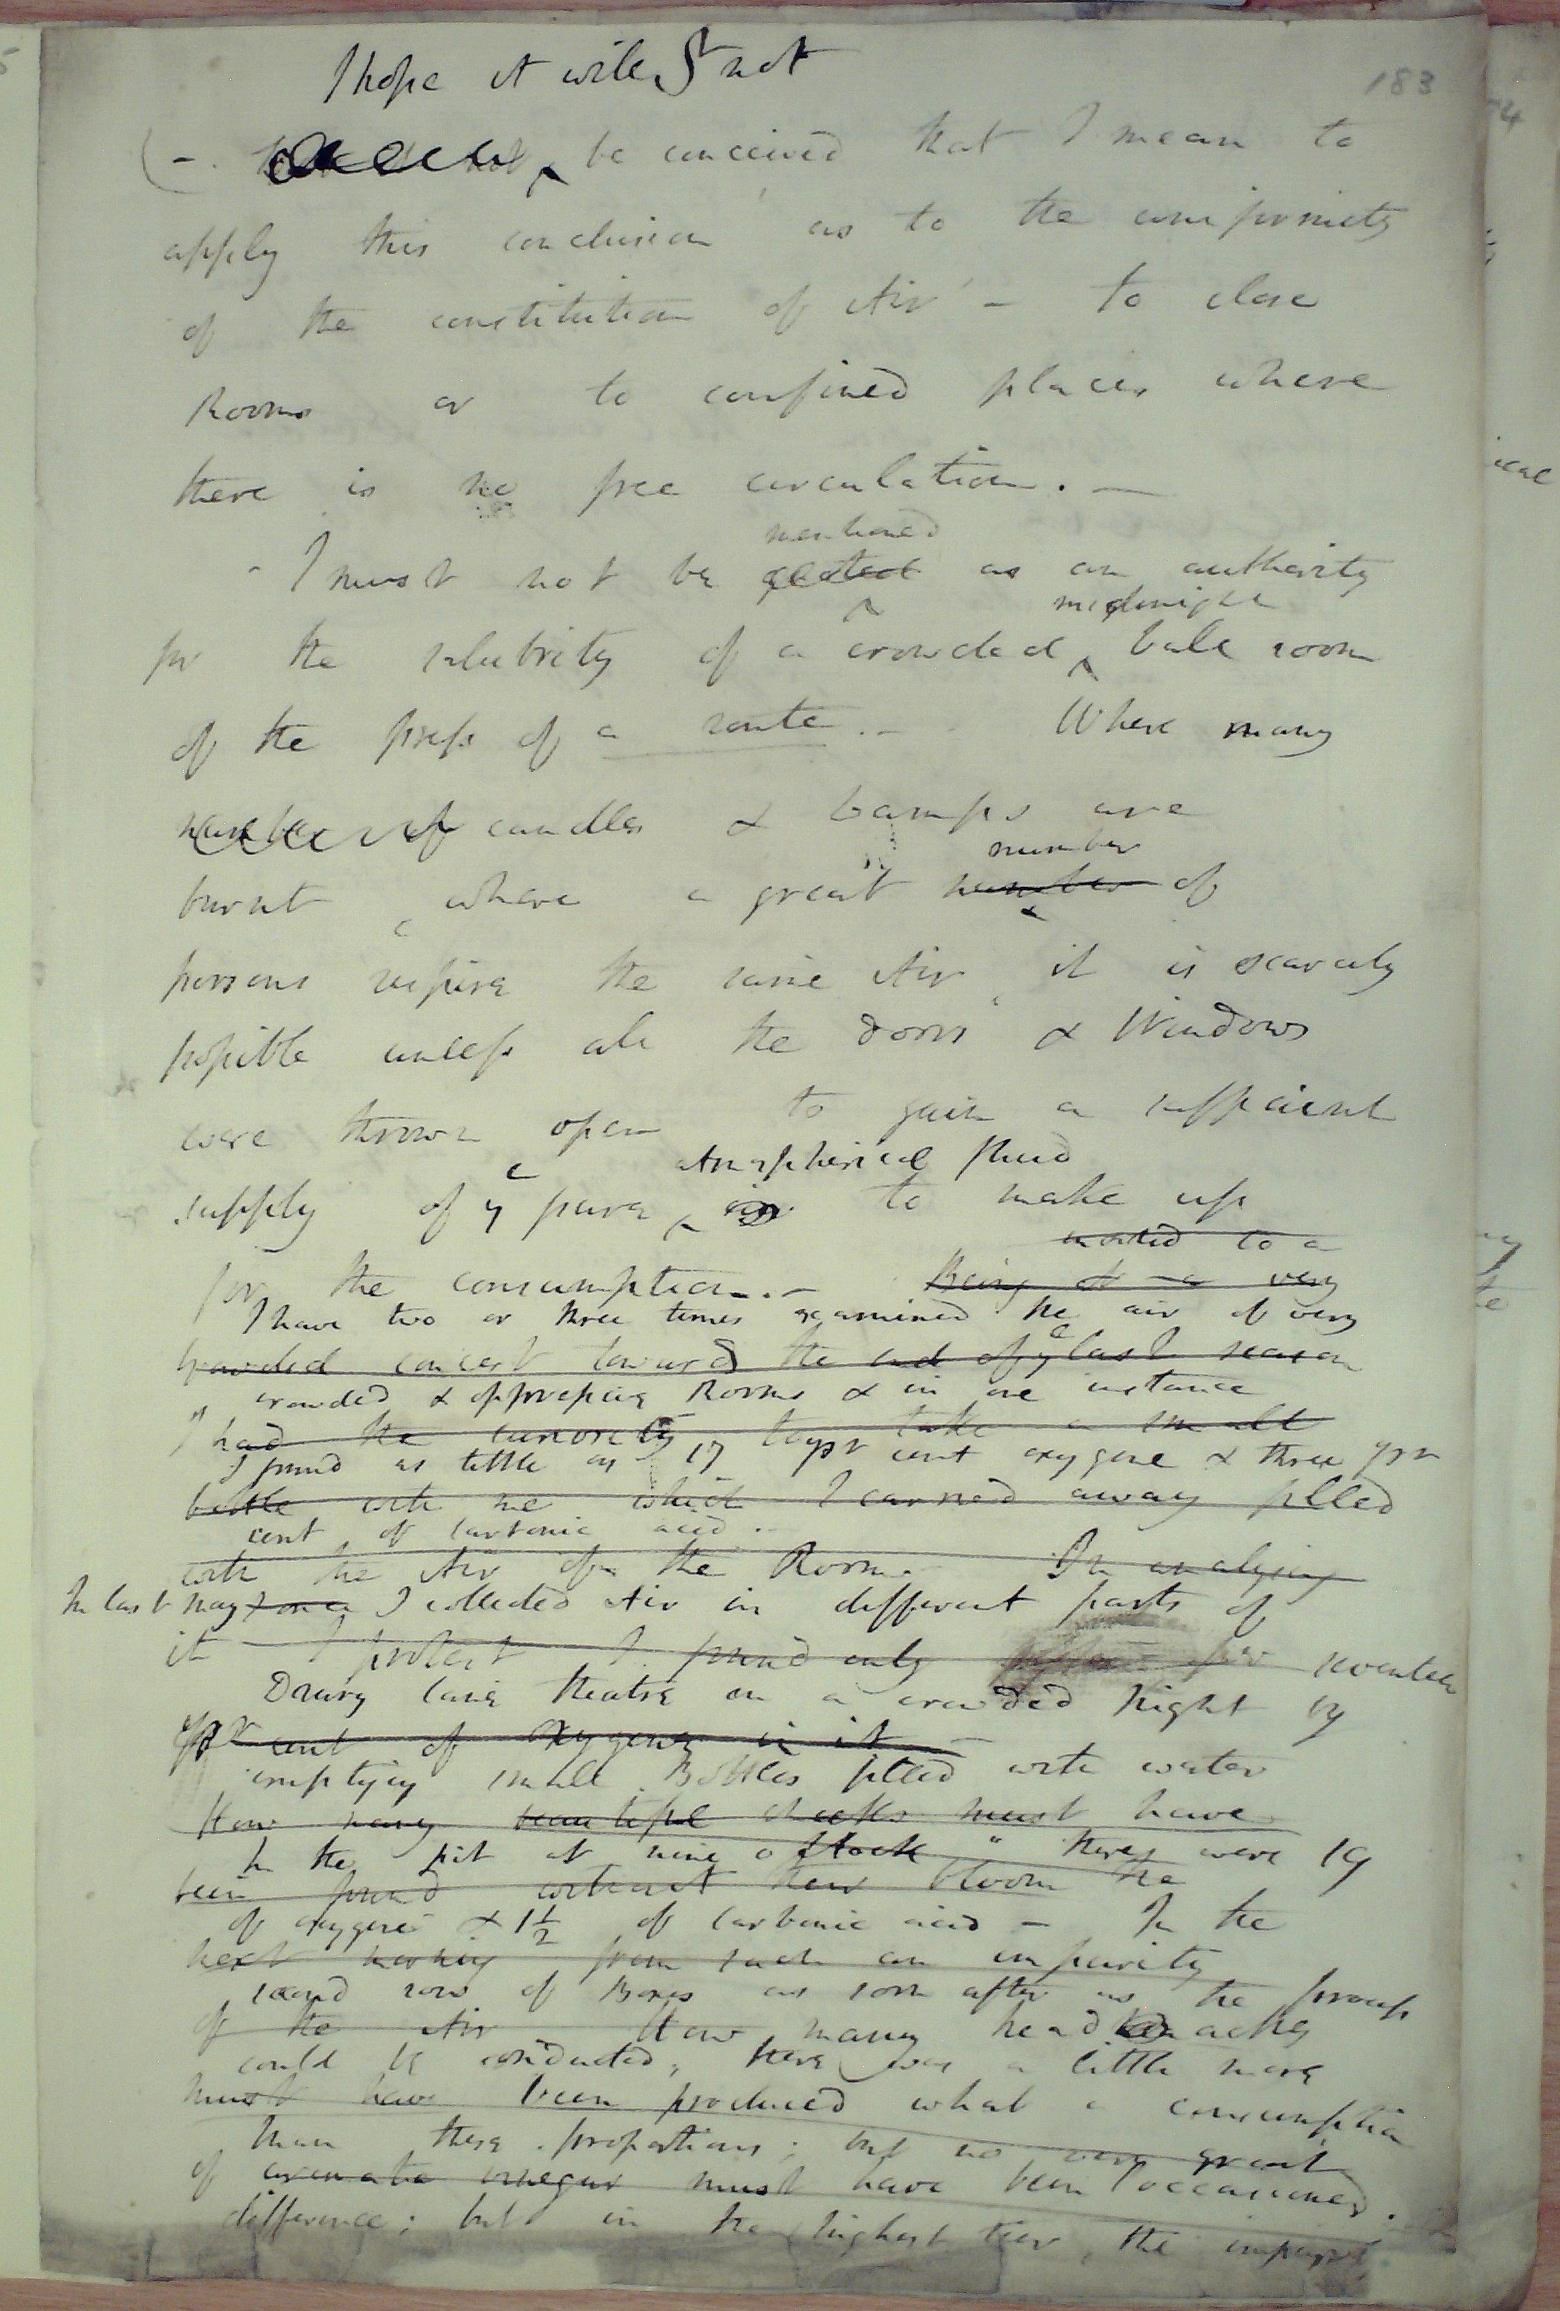 183
I hope it will not
(-. be conceived that I mean to
apply this conclusion as to the uniformity
of the constitution of Air - to close
Rooms or to confined places where
there is no free circulation. -
mentioned
- I must not be quoted as an authority
midnight
for the salubrity of a crowded ball room
of the press of a route. - Where many
number of candles & Lamps are
number
burnt, where a great number of
persons respire the same Air, it is scarcely
possible unless all the doors & Windows
were thrown open to gain a sufficient
Atmospherical fluid
supply of ye pure air to make up
invited to a
for the consumption. - Being at a very
I have two or three times examined the air of very
crowded concert towards the end of ye last season
crowded & oppressive Rooms & in one instance
I had the curiosity to take a small
I found as little as 19 per cent oxygene & three per
bottle with me which I carried away filled
cent of carbonic acid. -
with the Air of the Room. In analysing
In last May I collected Air in different parts of
it - I protest I found only per seventeen
Drury lane theatre on a crowded Night by
per cent of oxygene in it -
emptying small Bottles filled with water
How many beautiful cheeks must have
In the pit at nine o clock " there were 19
been found without their bloom the
of oxygene & 1 1/2 of carbonic acid - In the
next morning from such an impurity
second row of Boxes as soon after as the process
of the Air How many head aches
could be conducted, there was a little more
must have been produced what a consumption
than these proportions; but no very great
of aromatic vinegar must have been occasioned.
difference; but in the highest tier, the impurest